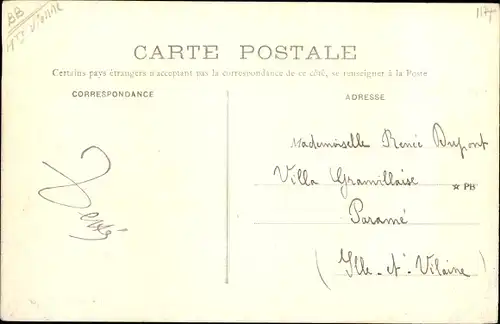 BB
CARTE POSTALE
Certains pays étrangers n'acceptant pas la correspondance de ce côté, se renseigner à la Poste
CORRESPONDANCE
ADRESSE
Mademoiselle Renée Dupont
Villa Granvillaise
★ PB
Paramé
(Ille-et-Vilaine)